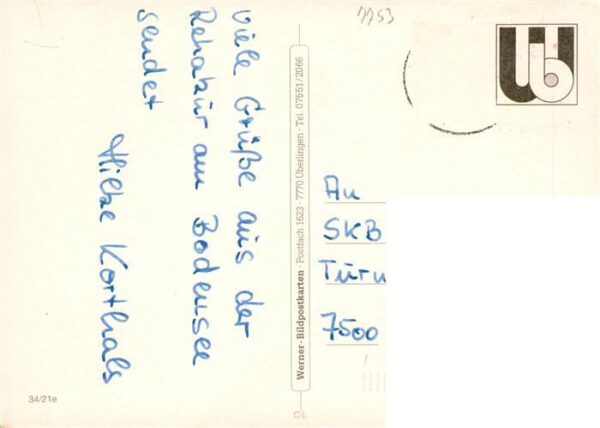 Viele Grüße aus der
Rehakur am Bodensee
sendet
Hilke Korthals
Werner · Bildpostkarten · Postfach 1623 · 7770 Überlingen · Tel. 07551/2066
7753
An
SKB
Turn
7500
34/21e
C-L